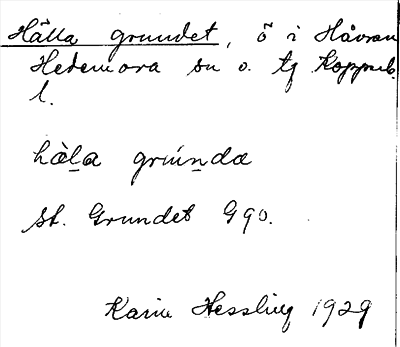 Hålla grundet, ö i Håvran
Hedemora sn o. tg Kopparb.
l.
hàl̲a grún̲dæ
st. Grundet G90.
Karin Hessling 1929